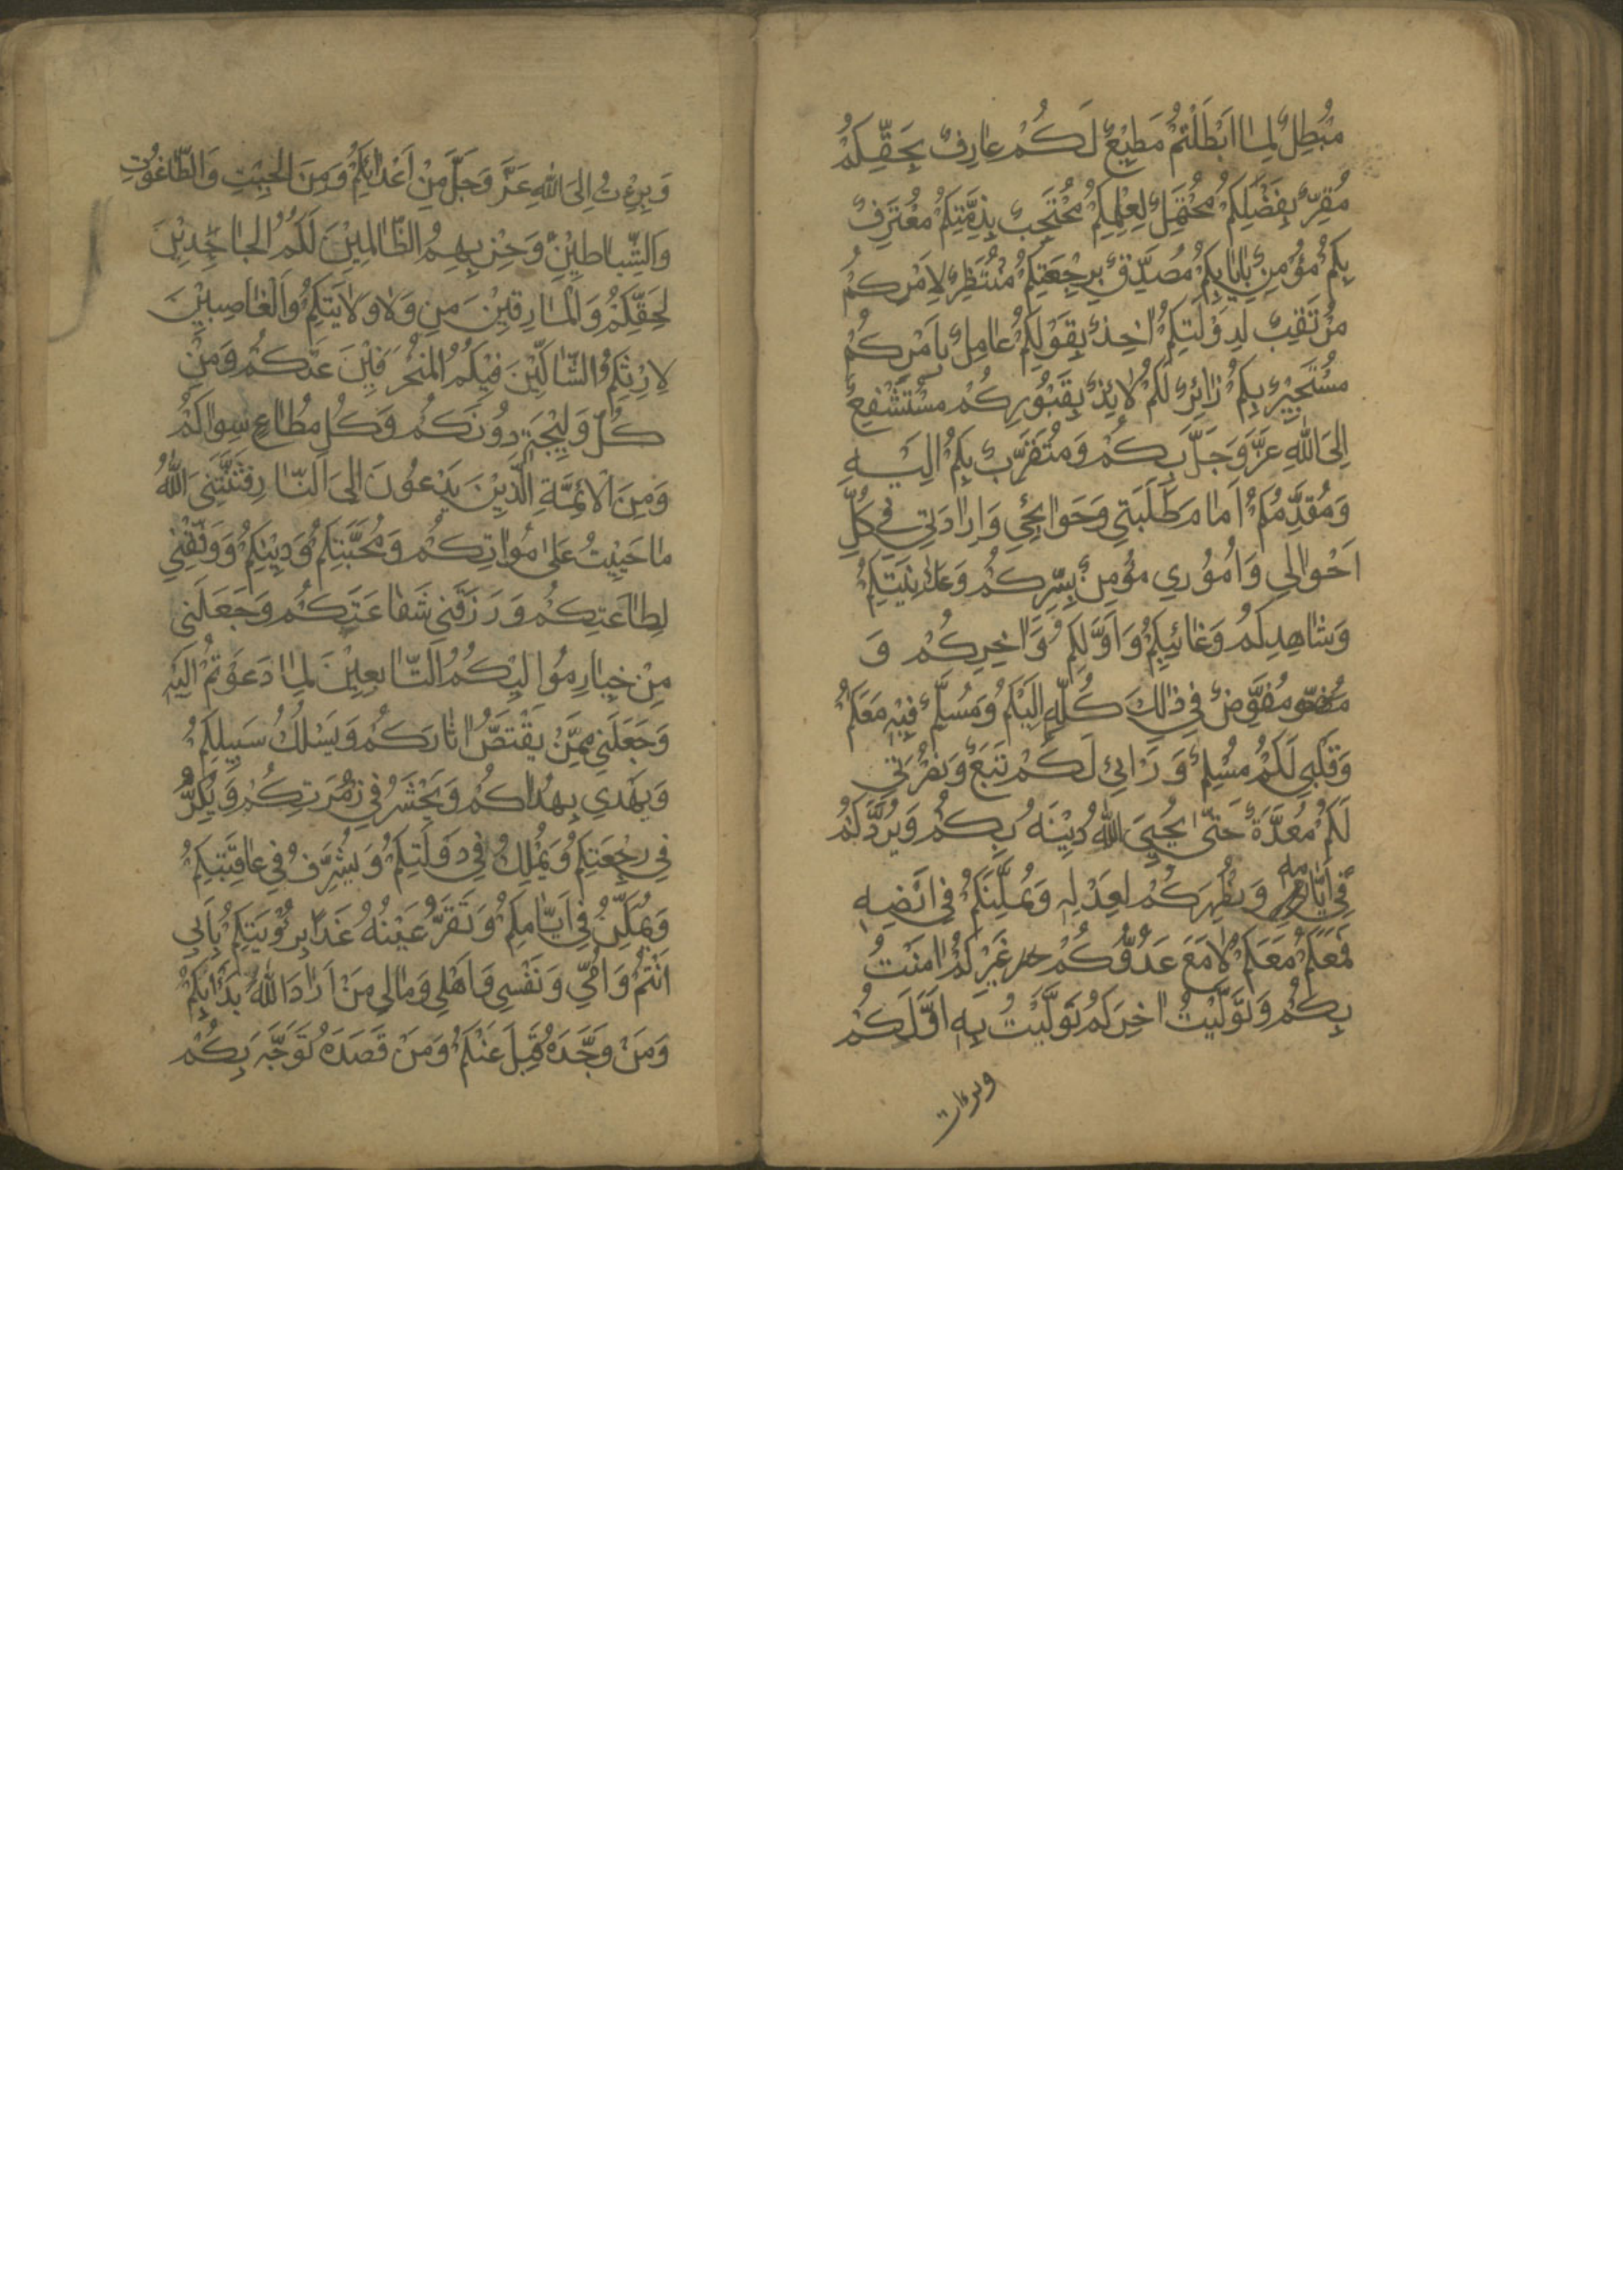 مُبْطِلٌ لِمٰا اَبْطَلْتُمْ مُطِيْعٌ لَكُمْ عٰارِفٌ بِحَقِّكُمْ
مُقِرٌّ بِفَضْلِكُمْ مُحْتَمِلٌ لِعِلْمِكُمْ مُحْتَجِبٌ بِذِمَّتِكُمْ مُعْتَرِفٌ
بِكُمْ مُؤْمِنٌ بِاِيٰابِكُمْ مُصَدِّقٌ بِرَجْعَتِكُمْ مُنْتَظِرٌ لِاَمْرِكُمْ
مُرْتَقِبٌ لِدَوْلَتِكُمْ اٰخِذٌ بِقَوْلِكُمْ عٰامِلٌ بِاَمْرِكُمْ
مُسْتَجِيْرٌ بِكُمْ زٰائِرٌ لَكُمْ لٰائِذٌ بِقُبُوْرِكُمْ مُسْتَشْفِعٌ
اِلَى اللّٰهِ عَزَّ وَجَلَّ بِكُمْ وَمُتَقَرِّبٌ بِكُمْ اِلَيْهِ
وَمُقَدِّمُكُمْ اَمٰامَ طَلِبَتِي وَحَوٰائِجِي وَاِرٰادَتِي فِي كُلِّ
اَحْوٰالِي وَاُمُوْرِي مُؤْمِنٌ بِسِرِّكُمْ وَعَلٰانِيَتِكُمْ
وَشٰاهِدِكُمْ وَغٰائِبِكُمْ وَاَوَّلِكُمْ وَاٰخِرِكُمْ وَ
مُفَوِّضٌ فِي ذٰلِكَ كُلِّهِ اِلَيْكُمْ وَمُسَلِّمٌ فِيْهِ مَعَكُمْ
وَقَلْبِي لَكُمْ مُسْلِمٌ وَرَائِي لَكُمْ تَبَعٌ وَنُصْرَتِي
لَكُمْ مُعَدَّةٌ حَتّٰى يُحْيِيَ اللّٰهُ دِيْنَهُ بِكُمْ وَيَرُدَّكُمْ
فِي اَيّٰامِهِ وَيُظْهِرَكُمْ لِعَدْلِهِ وَيُمَكِّنَكُمْ فِي اَرْضِهِ
فَمَعَكُمْ مَعَكُمْ لٰا مَعَ عَدُوِّكُمْ غَيْرِكُمْ اٰمَنْتُ
بِكُمْ وَتَوَلَّيْتُ اٰخِرَكُمْ تَوَلَّيْتُ بِهِ اَوَّلَكُمْ
وبرءت
وَبَرِءْتُ اِلَى اللّٰهِ عَزَّ وَجَلَّ مِنْ اَعْدٰائِكُمْ وَمِنَ الْجِبْتِ وَالطّٰاغُوْتِ
وَالشَّيٰاطِيْنِ وَحِزْبِهِمُ الظّٰالِمِيْنَ لَكُمُ الْجٰاحِدِيْنَ
لِحَقِّكُمْ وَالْمٰارِقِيْنَ مِنْ وَلٰايَتِكُمْ وَالْغٰاصِبِيْنَ
لِاِرْثِكُمْ الشّٰاكِّيْنَ فِيْكُمُ الْمُنْحَرِفِيْنَ عَنْكُمْ وَمِنْ
كُلِّ وَلِيْجَةٍ دُوْنَكُمْ وَكُلِّ مُطٰاعٍ سِوٰاكُمْ
وَمِنَ الْاَئِمَّةِ الَّذِيْنَ يَدْعُوْنَ اِلَى النّٰارِ فَثَبَّتَنِيَ اللّٰهُ
مٰا حَيِيْتُ عَلٰى مُوٰالٰاتِكُمْ وَمَحَبَّتِكُمْ وَدِيْنِكُمْ وَوَفَّقَنِي
لِطٰاعَتِكُمْ وَرَزَقَنِي شَفٰاعَتَكُمْ وَجَعَلَنِي
مِنْ خِيٰارِ مُوٰالِيْكُمُ التّٰابِعِيْنَ لِمٰا دَعَوْتُمْ اِلَيْهِ
وَجَعَلَنِي مِمَّنْ يَقْتَصُّ اٰثٰارَكُمْ وَيَسْلُكُ سَبِيْلَكُمْ
وَيَهْتَدِي بِهُدٰاكُمْ وَيُحْشَرُ فِي زُمْرَتِكُمْ وَيَكِرُّ
فِي رَجْعَتِكُمْ وَيُمَلَّكُ فِي دَوْلَتِكُمْ وَيُشَرَّفُ فِي عٰافِيَتِكُمْ
وَيُمَكَّنُ فِي اَيّٰامِكُمْ وَتَقَرُّ عَيْنُهُ غَدًا بِرُؤْيَتِكُمْ بِاَبِي
اَنْتُمْ وَاُمِّي وَنَفْسِي وَاَهْلِي وَمٰالِي مَنْ اَرٰادَ اللّٰهَ بَدَاَ بِكُمْ
وَمَنْ وَحَّدَهُ قَبِلَ عَنْكُمْ وَمَنْ قَصَدَهُ تَوَجَّهَ بِكُمْ